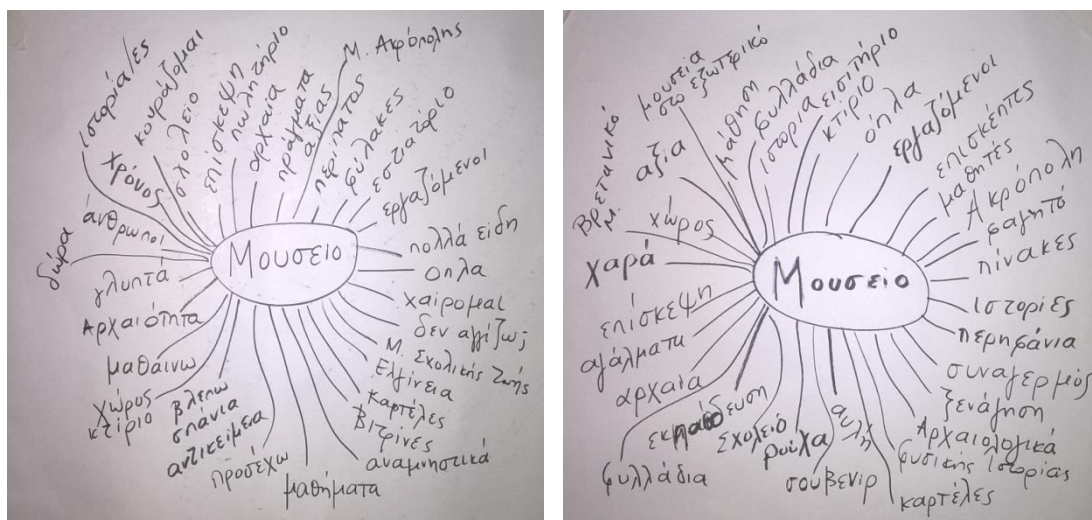 Μουσείο
Μ. Ακρόπολης
ιστορία/ες
κουράζομαι
χρόνος
σχολείο
επίσκεψη
πωλητήριο
αρχαία
πράγματα
αξίας
περίπατος
φύλακες
εστιατόριο
εργαζόμενοι
πολλά είδη
όπλα
χαίρομαι
δεν αγγίζω;
Μ. Σχολικής Ζωής
Ελγίνεια
καρτέλες
βιτρίνες
αναμνηστικά
μαθήματα
προσέχω
βλέπω
σπάνια
αντικείμενα
χώρος
κτίριο
μαθαίνω
Αρχαιότητα
γλυπτά
δώρα
άνθρωποι
Μουσείο
Βρετανικό
Μ.
αξία
μουσεία
στο εξωτερικό
μάθηση
φυλλάδια
ιστορία
εισιτήριο
κτίριο
όπλα
εργαζόμενοι
επισκέπτες
μαθητές
Ακρόπολη
φαγητό
πίνακες
ιστορίες
περηφάνια
συναγερμός
ξενάγηση
Αρχαιολογικά
φυσικής Ιστορίας
καρτέλες
αυλή
σουβενίρ
ρούχα
Σχολείο
εκπαίδευση
φυλλάδια
αρχαία
αγάλματα
επίσκεψη
χαρά
χώρος